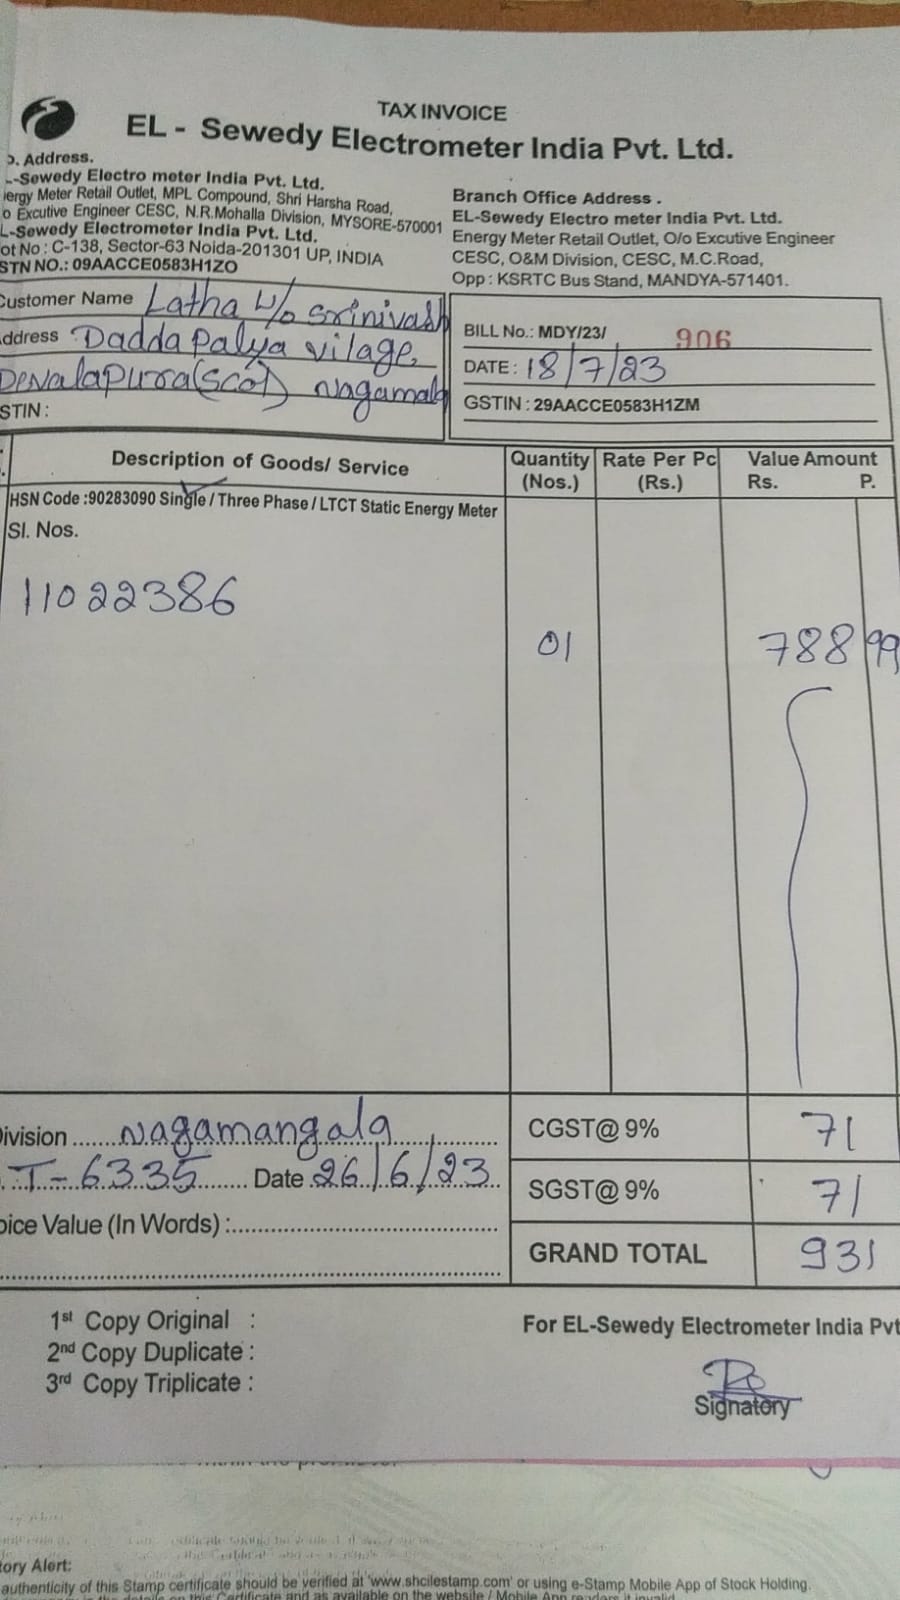 TAX INVOICE
EL - Sewedy Electrometer India Pvt. Ltd.
o. Address.
-Sewedy Electro meter India Pvt. Ltd.
ergy Meter Retail Outlet, MPL Compound, Shri Harsha Road,
o Excutive Engineer CESC, N.R.Mohalla Division, MYSORE-570001
L-Sewedy Electrometer India Pvt. Ltd.
ot No : C-138, Sector-63 Noida-201301 UP, INDIA
STN NO.: 09AACCE0583H1ZO
Branch Office Address .
EL-Sewedy Electro meter India Pvt. Ltd.
Energy Meter Retail Outlet, O/o Excutive Engineer
CESC, O&M Division, CESC, M.C.Road,
Opp : KSRTC Bus Stand, MANDYA-571401.
Customer Name Latha W/o Srinivash
ddress Daddapalya vilage,
Devalapura(SCO) Nagamala
STIN :
BILL No.: MDY/23/ 906
DATE : 18/7/23
GSTIN : 29AACCE0583H1ZM
Description of Goods/ Service Quantity (Nos.) Rate Per Pc (Rs.) Value Amount Rs. P.
HSN Code :90283090 Single / Three Phase / LTCT Static Energy Meter
Sl. Nos.
11022386
01 788 99
ivision ...... Nagamangala
CGST@ 9% 71
T-6335 Date 26/6/23
SGST@ 9% 71
oice Value (In Words) :
GRAND TOTAL 931
1st Copy Original :
2nd Copy Duplicate :
3rd Copy Triplicate :
For EL-Sewedy Electrometer India Pvt
Signatory
tory Alert:
authenticity of this Stamp certificate should be verified at 'www.shcilestamp.com' or using e-Stamp Mobile App of Stock Holding.